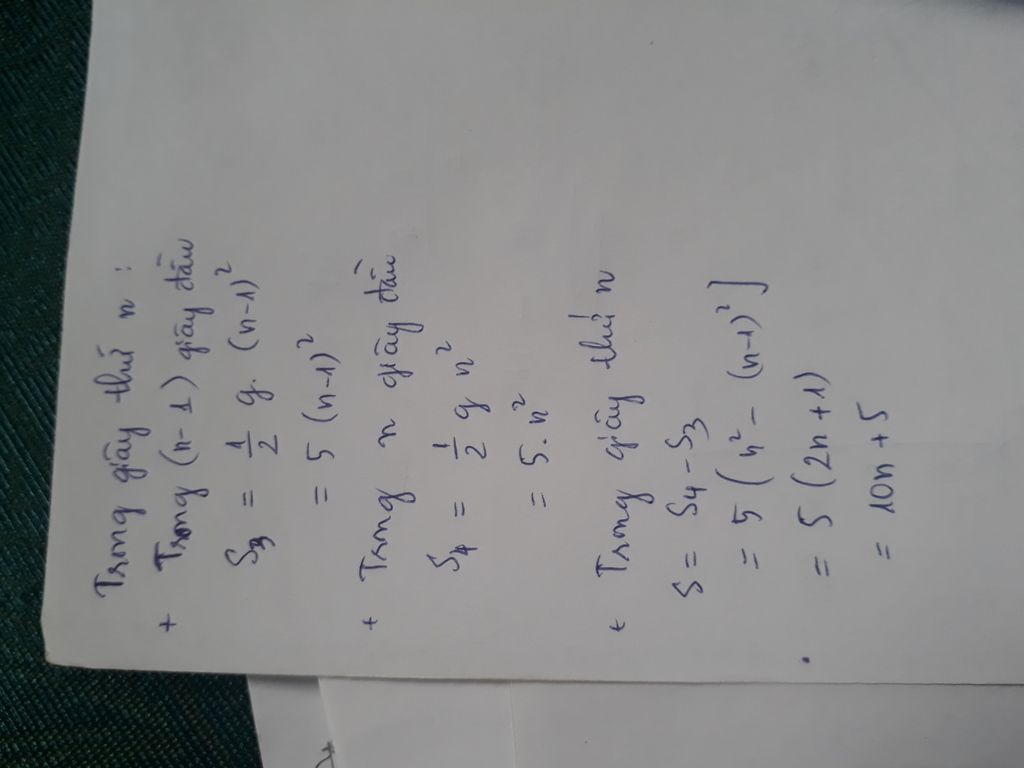 Trong giây thứ n :
+ Trong (n-1) giây đầu
S₃ = 1/2 g. (n-1)²
= 5 (n-1)²
+ Trong n giây đầu
S₄ = 1/2 g n²
= 5. n²
+ Trong giây thứ n
S = S₄ - S₃
= 5 ( n² - (n-1)² ]
= 5 (2n + 1)
= 10n + 5